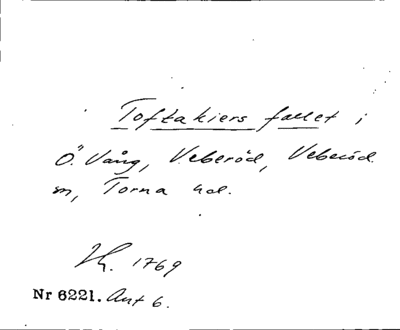 Toftakiers fallet i
Ö. Vång, Veberöd, Veberöd
sn, Torna hd.
Hg. 1769
Nr 6221. Ant 6.